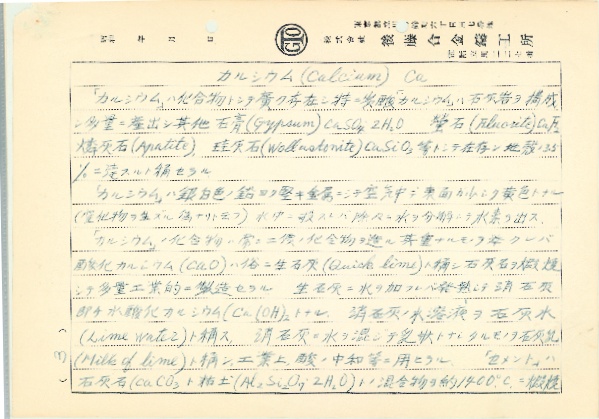 昭和 年 月 日
GTO
株式会社 後藤合金鑄工所
カルシウム (Calcium) Ca
「カルシウム」ハ化合物トシテ廣ク存在シ特ニ炭酸「カルシウム」ハ石灰岩ヲ構成
シ多量ニ産出シ其他石膏 (Gypsum) CaSO4 2H2O 螢石 (Fluorite) CaF2
燐灰石 (Apatite), 珪灰石 (Wollastonite) CaSiO3 等トシテ在存シ地殼ノ3.5
%ニ達スルト稱セラル
「カルシウム」ハ銀白色ノ鉛ヨリ堅キ金属ニシテ空気中デ表面ガ少シク黄色トナル
(窒化物ヲ生ズル為ナリト云フ) 水中ニ投スレバ除々ニ水ヲ分解シテ水素ヲ出ス、
「カルシウム」ノ化合物ハ常ニ二價ノ化合物ヲ造ル 其重ナルモノヲ挙クレバ
酸化カルシウム (CaO) ハ俗ニ生石灰 (Quick lime) ト稱シ石灰石ヲ煆焼
シテ多量工業的ニ製造セラル 生石灰ニ水ヲ加フレバ発熱シテ消石灰
即チ水酸化カルシウム (Ca(OH)2 トナル、 消石灰ノ水溶液ヲ石灰水
(Lime water) ト稱ス、 消石灰ハ水ヲ混シテ乳状トナシタルモノヲ石灰乳
(Milk of lime) ト稱シ、工業上酸ノ中和等ニ用ヒラル、 「セメント」ハ
石灰石 (CaCO3 ト粘土 (Al2Si2O7 2H2O) トノ混合物ヲ約1400°C.ニ煆焼
(3)